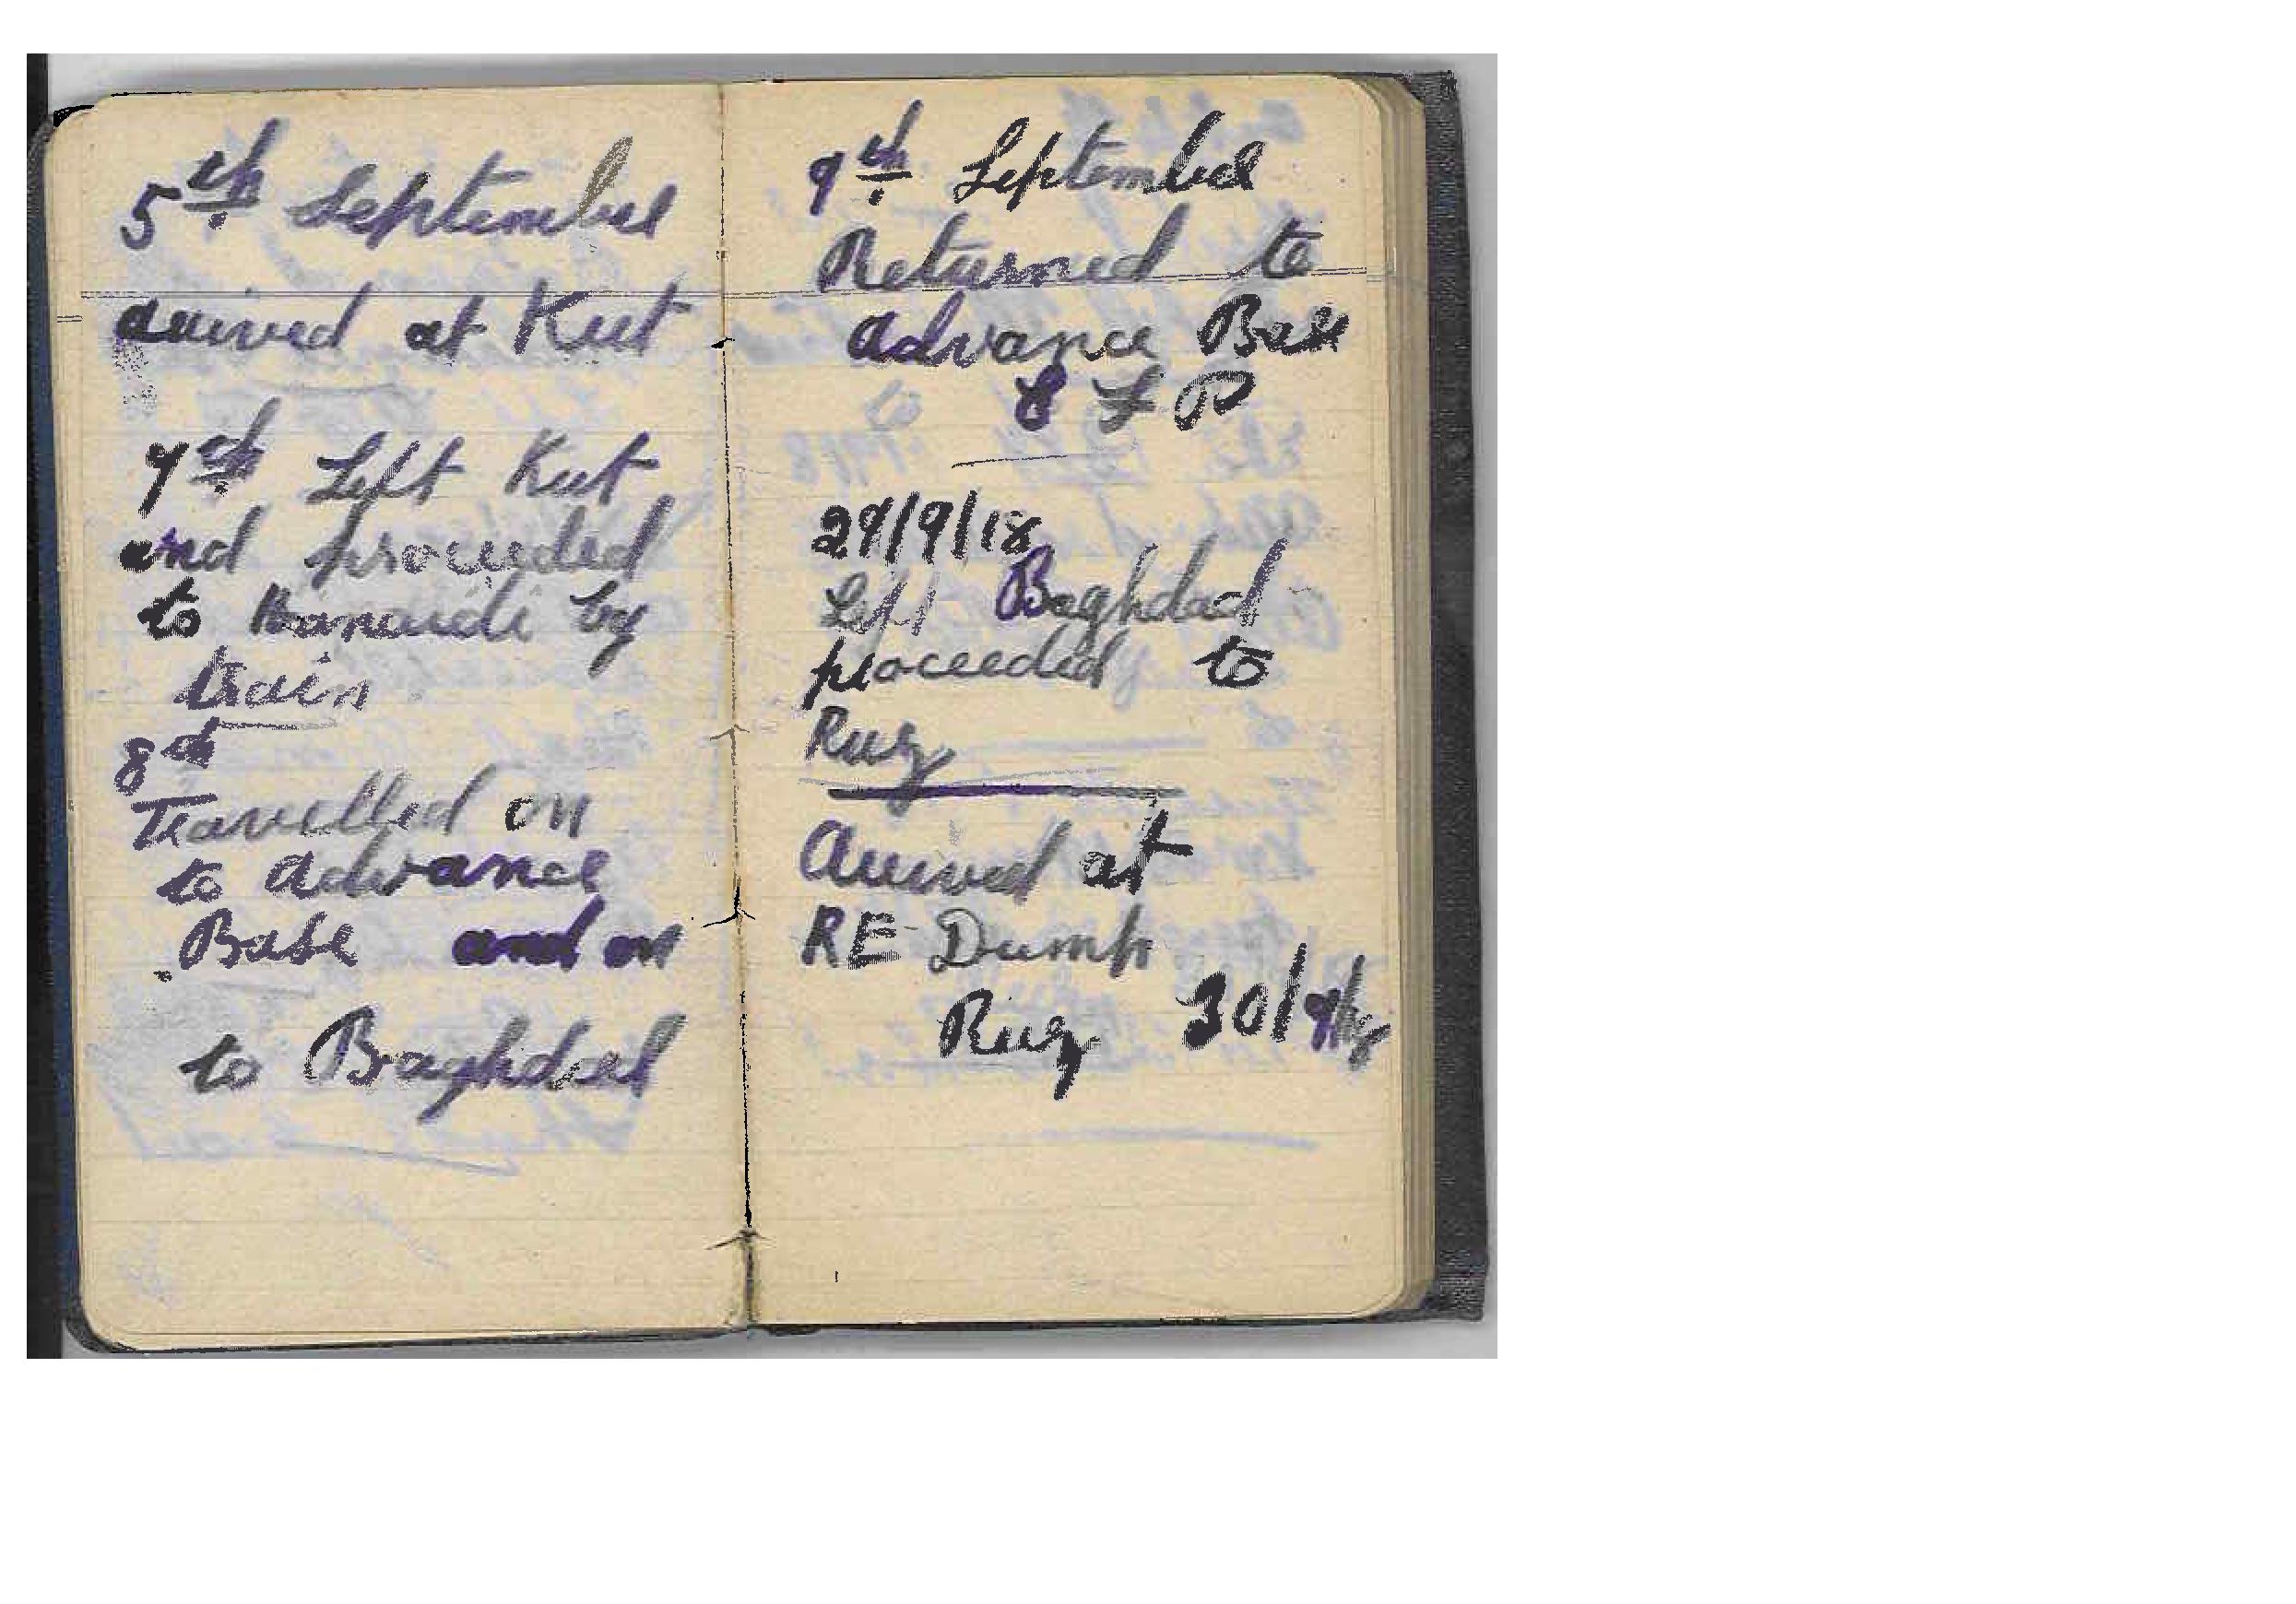 5th September
arrived at Kut
7th Left Kut
and proceeded
to by
train
8th
Travelled on
to advance
Base and on
to Baghdad
9th September
Returned to
advance Base
P
29/9/18
Left Baghdad
proceeded to
Ruz
Arrived at
RE Dump
Ruz 30/9/18